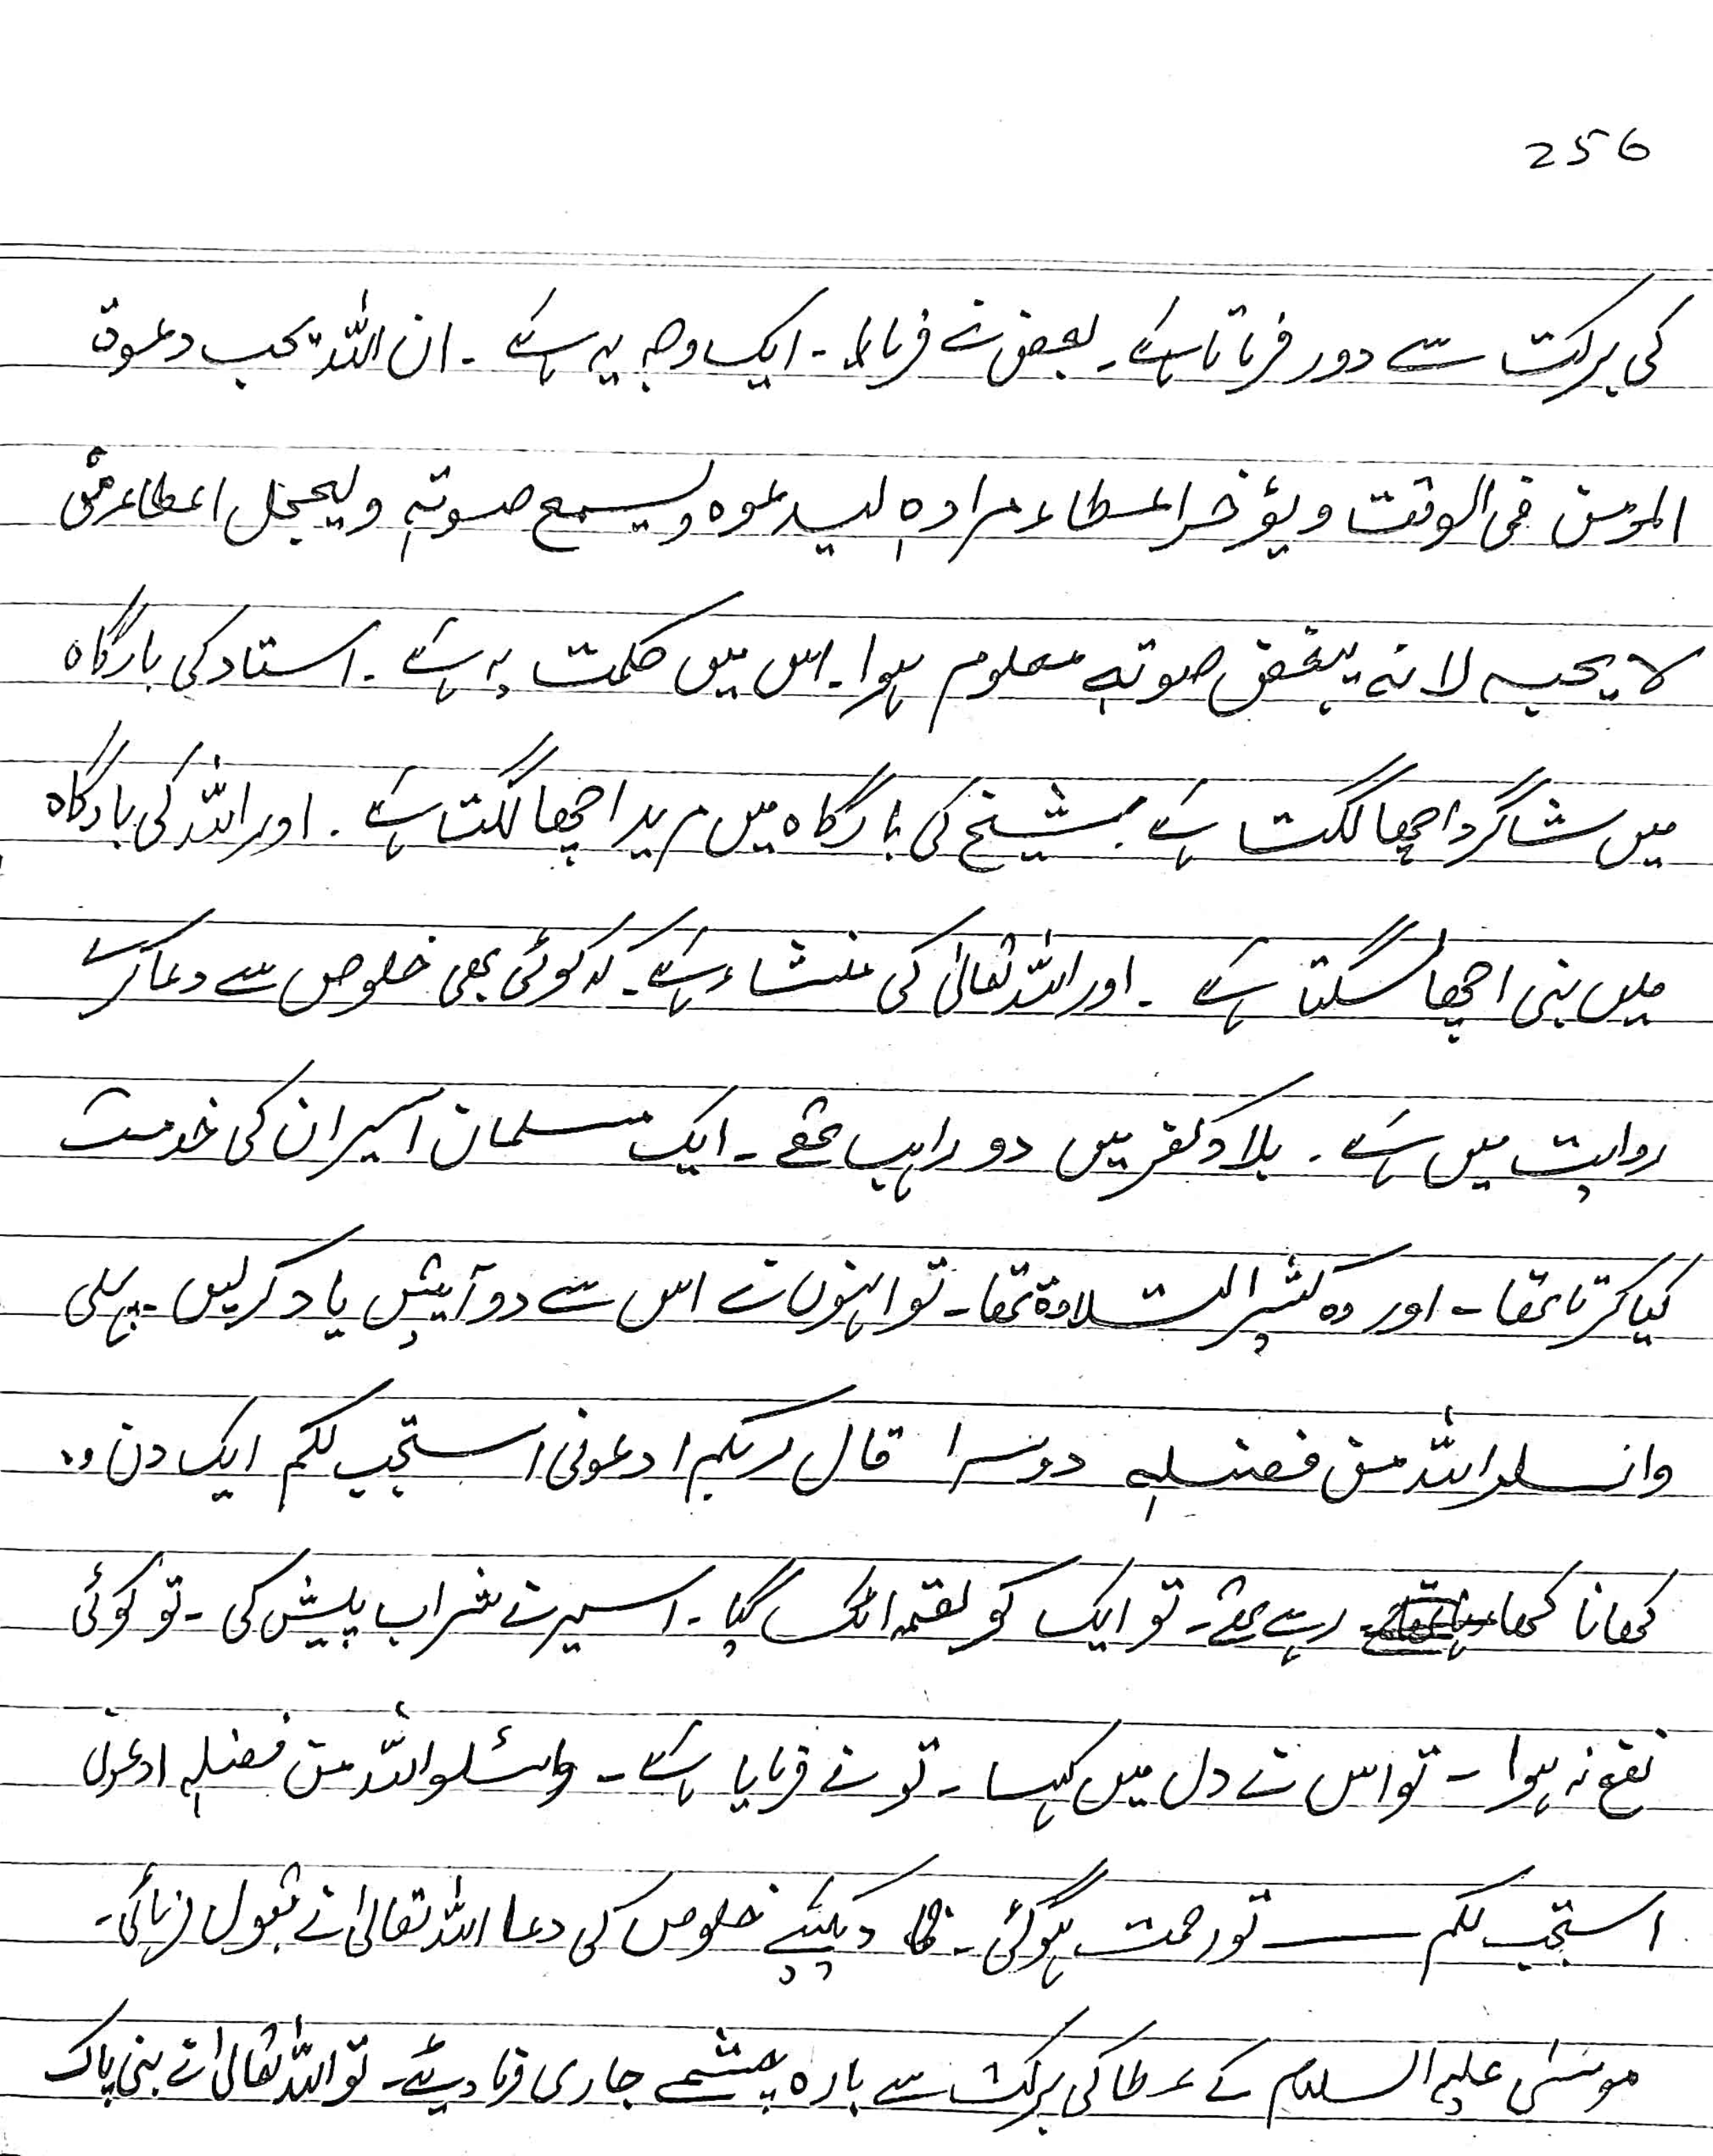 256
کی برکت سے دور فرماتا ہے۔ بعض نے فرمایا۔ ایک وجہ یہ ہے۔ ان اللہ یحب دعوة
المؤمن فی الوقت و یؤخر العطاء مرادہ لیدعوہ و یسمع صوتہ و لیعجل اعطاء من
لا یحبہ لانہ یبغض صوتہ معلوم ہوا۔ اس میں حکمت یہ ہے۔ استاد کی بارگاہ
میں شاگرد اچھا لگتا ہے شیخ کی بارگاہ میں مرید اچھا لگتا ہے۔ اور اللہ کی بارگاہ
میں نبی اچھا لگتا ہے۔ اور اللہ تعالیٰ کی منشاء ہے۔ کہ کوئی بھی خلوص سے دعا کرے
روایت میں ہے۔ بلاد کفر میں دو راہب تھے۔ ایک مسلمان اسیر ان کی خدمت
کیا کرتا تھا۔ اور وہ کثیر التلاوة تھا۔ تو انہوں نے اس سے دو آیتیں یاد کرلیں۔ پہلی
وانسلوا اللہ من فضلہ دوسرا قال ربکم ادعونی استجب لکم ایک دن وہ
کھانا کھا رہے تھے۔ تو ایک کو لقمہ اٹک گیا۔ اسیر نے شراب پیش کی۔ تو کوئی
نفع نہ ہوا۔ تو اس نے دل میں کہا۔ تو نے فرمایا ہے۔ واسئلوا اللہ من فضلہ ادعونی
استجب لکم تو رحمت ہوگئی۔ دیکھئیے خلوص کی دعا اللہ تعالیٰ نے قبول فرمائی۔
موسیٰ علیہ السلام کے عطا کی برکت سے بارہ چشمے جاری فرما دیئے۔ تو اللہ تعالیٰ نے نبی پاک